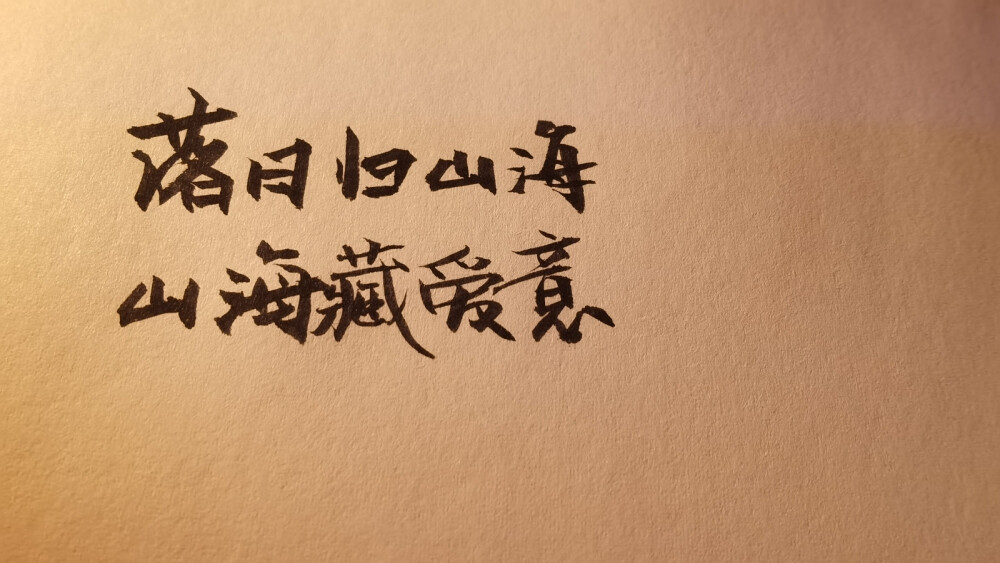 落日归山海
山海藏爱意